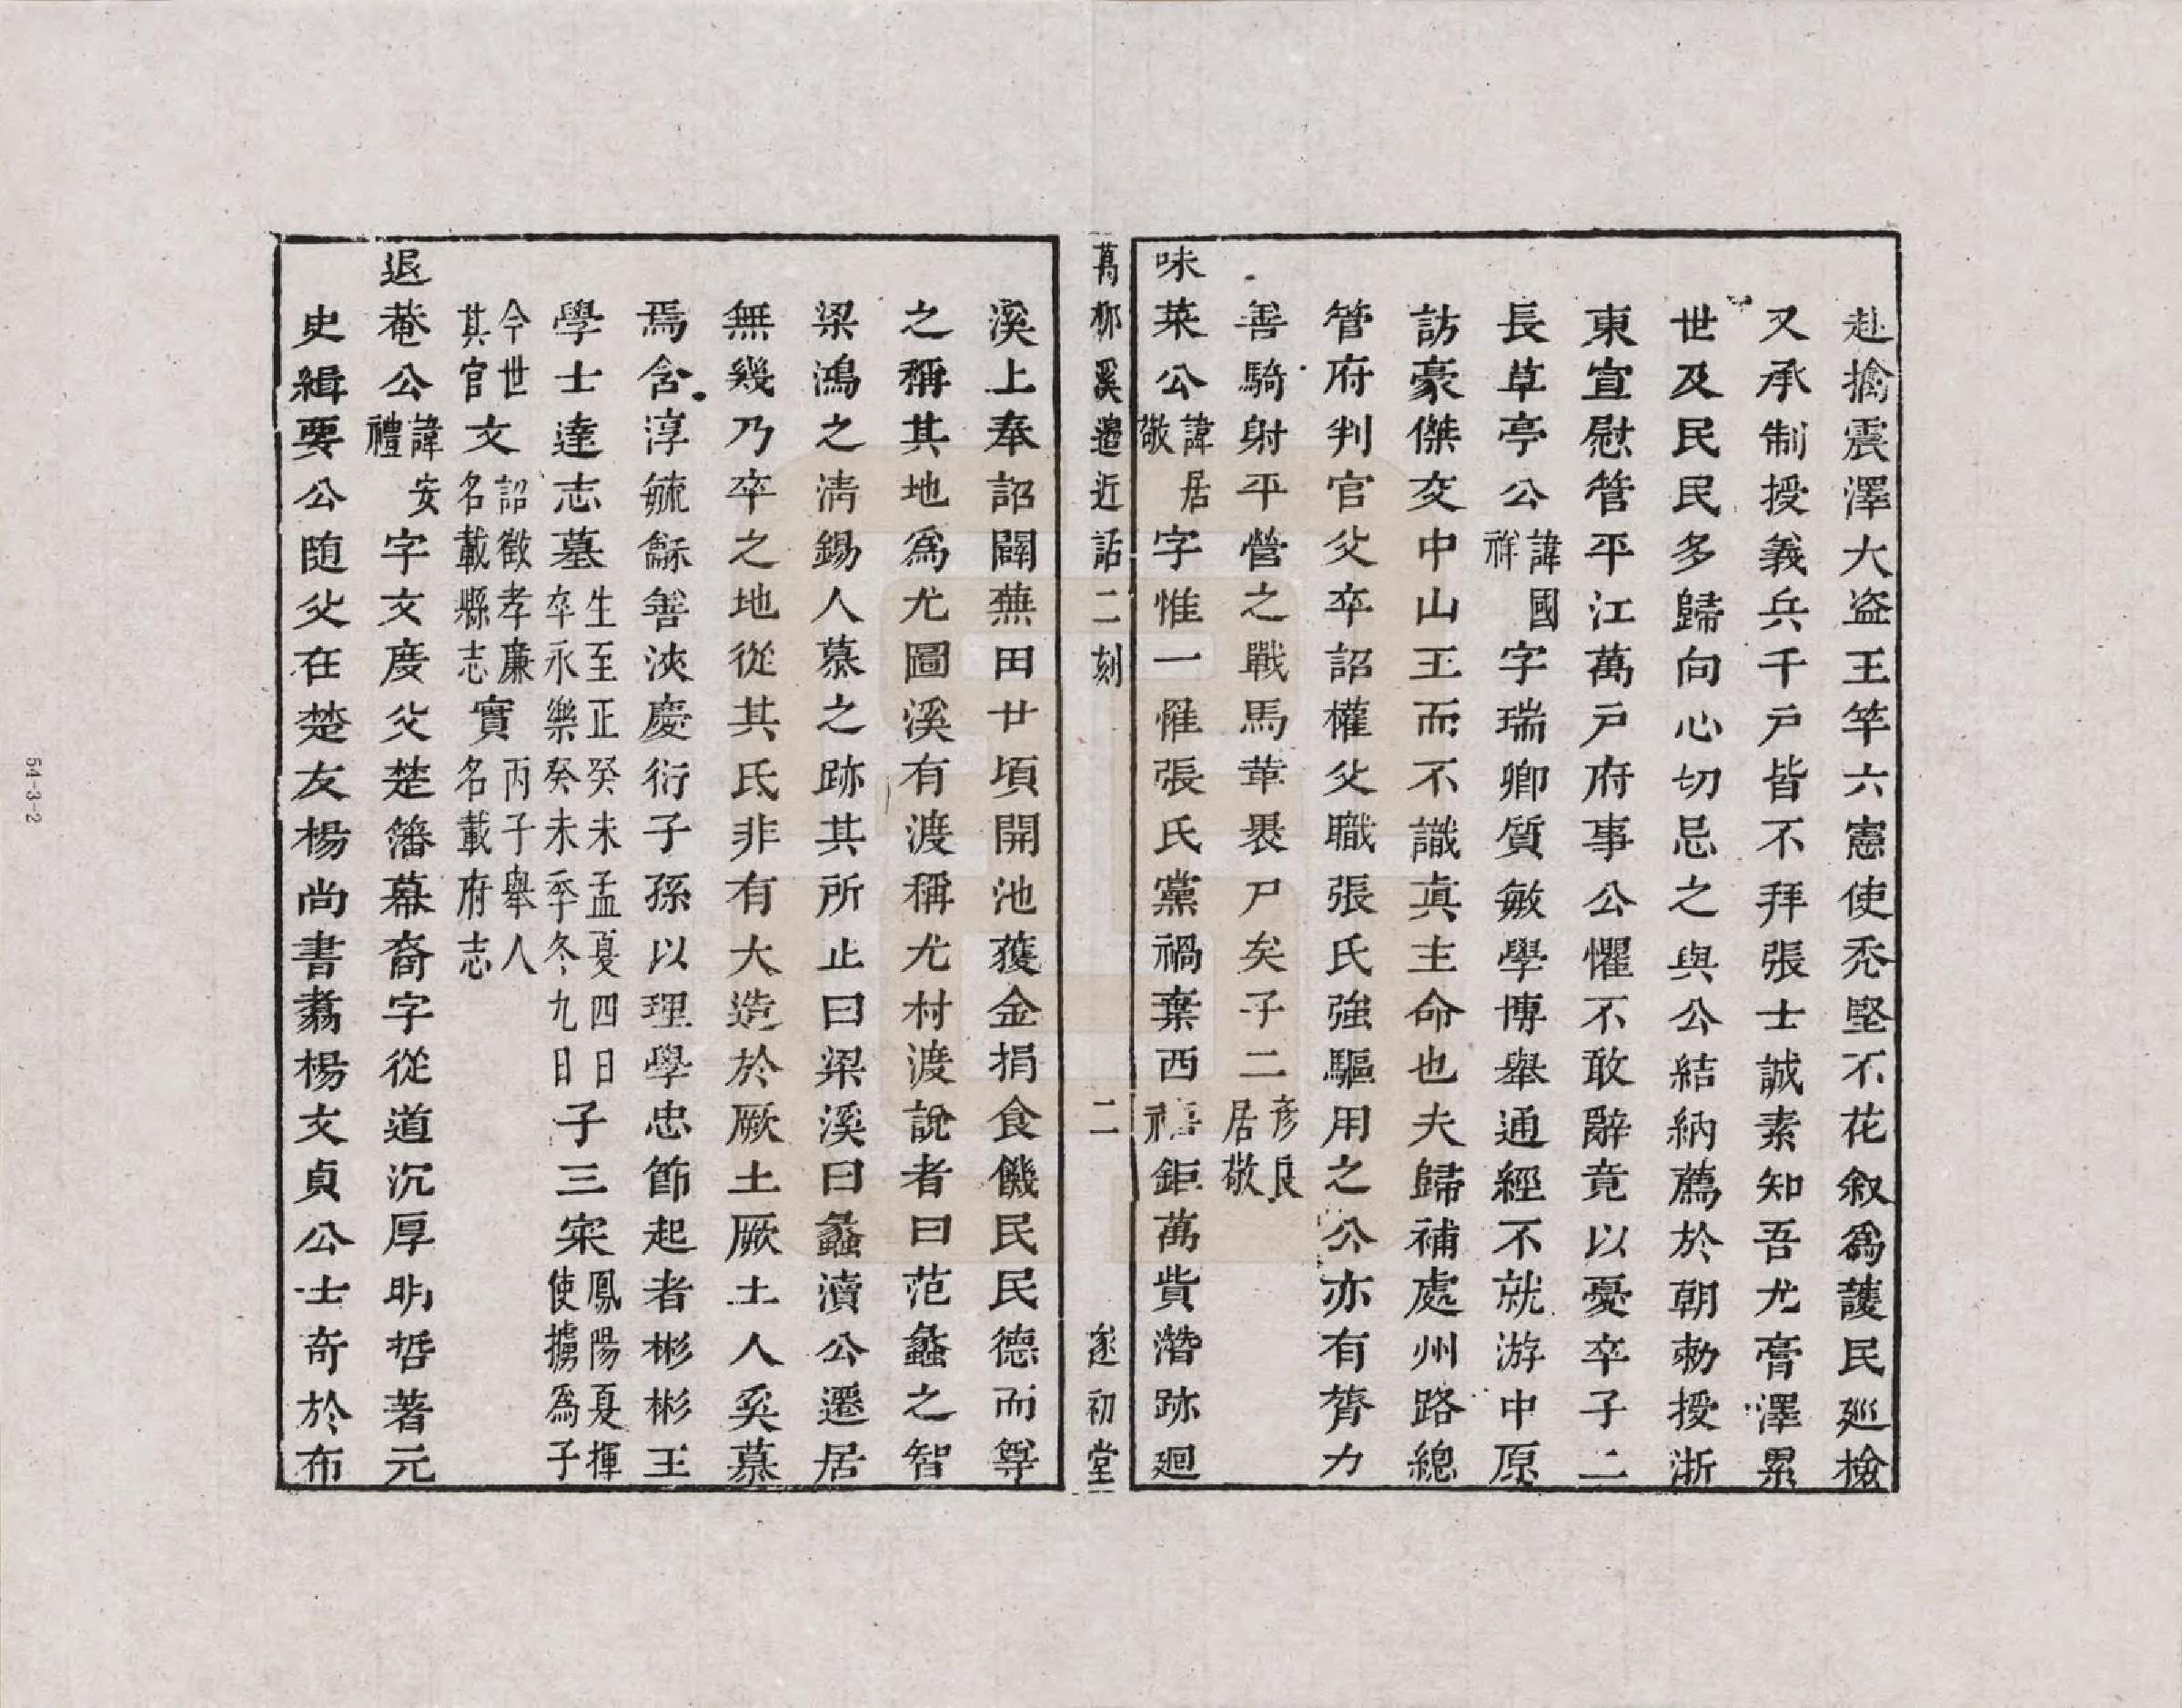 赴擒震澤大盗王竿六憲使禿堅不花叙爲護民廵檢
又承制授義兵千戸皆不拜張士誠素知吾尤膏澤累
世及民民多歸向心切忌之與公結納薦於朝勑授浙
東宣慰管平江萬戸府事公懼不敢辭竟以憂卒子二
長草亭公諱國祥字瑞卿質敏學博舉通經不就游中原
訪豪傑交中山王而不識真主命也夫歸補處州路總
管府判官父卒詔權父職張氏強驅用之公亦有膂力
善騎射平營之戰馬革褁尸矣子二彦良居敬
味菜公諱居敬字惟一罹張氏黨禍棄西禧鉅萬貲潛跡廻
萬柳溪邊近話二刻 二 遂初堂
溪上奉詔闢蕪田廿頃開池獲金捐食饑民民德而尊
之稱其地爲尤圖溪有渡稱尤村渡說者曰范蠡之智
梁鴻之清錫人慕之跡其所止曰梁溪曰蠡瀆公遷居
無幾乃卒之地從其氏非有大造於厥土厥土人奚慕
焉含淳毓龢善浹慶衍子孫以理學忠節起者彬彬王
學士達志墓生至正癸未孟夏四日卒永樂癸未季冬九日子三宗鳳陽夏揮使擄爲子
今世其官文詔徵孝廉名載縣志實丙子舉人名載府志
退菴公諱安禮字文度父楚籓幕裔字從道沉厚明哲著元
史緝要公随父在楚友楊尚書翥楊文貞公士奇於布
54-3-2